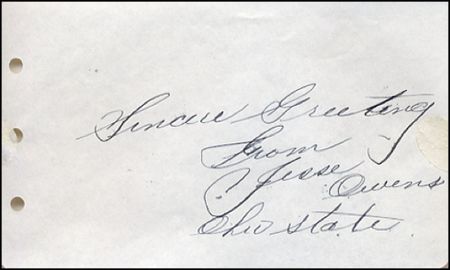 Sincere Greeting
From
Jesse Owens
Ohio State